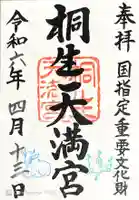 奉拝
国指定重要文化財
桐生天満宮
令和六年 四月十三日